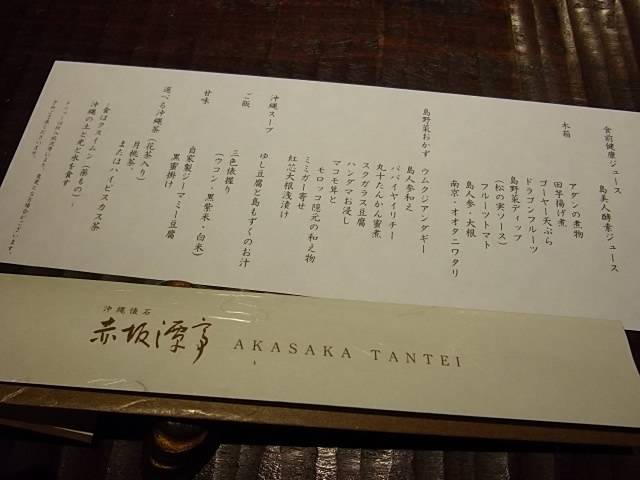 食前健康ジュース
島美人酵素ジュース
木箱
アダンの煮物
田芋揚げ煮
ゴーヤー天ぷら
ドラゴンフルーツ
島野菜ディップ
(松の実ソース)
フルーツトマト
島人参・大根
南京・オオタニワタリ
島野菜おかず
ウムクジアンダギー
島人参和え
パパイヤイリチー
丸十たんかん蜜煮
スクガラス豆腐
ハンダマお浸し
マコモ茸と
モロッコ隠元の和え物
ミミガー寄せ
紅芯大根浅漬け
沖縄スープ
ゆし豆腐と島もずくのお汁
ご飯
三色俵握り
(ウコン・黒紫米・白米)
甘味
自家製ジーマミー豆腐
黒蜜掛け
選べる沖縄茶(花茶入り)
月桃茶、
またはハイビスカス茶
-食はクスイムン(薬もの)-
沖縄の土と光と水を食す
沖縄懐石
赤坂潭亭
AKASAKA TANTEI